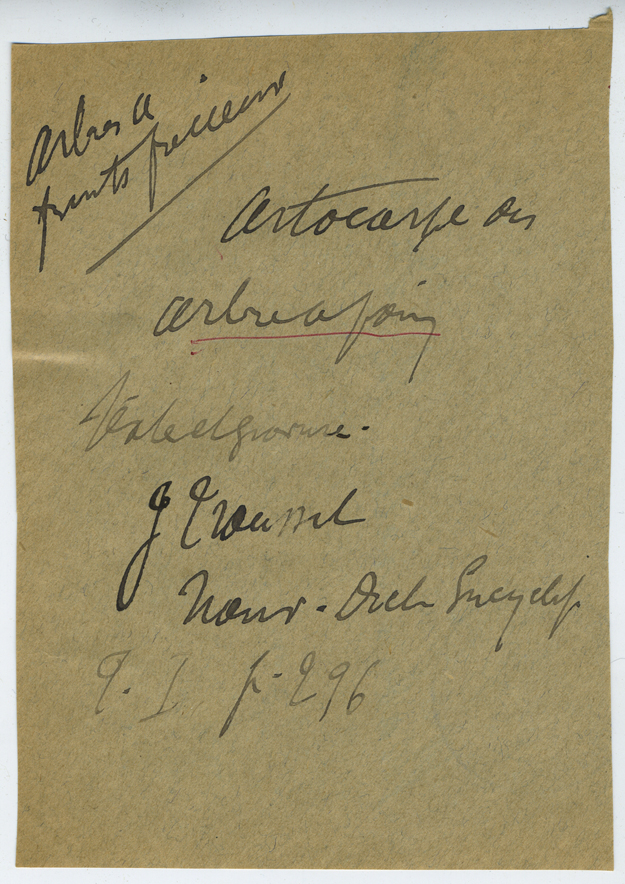 Arbres à
fruits précieux
Artocarpe ou
arbre a pain
Texte et gravure.
J Trousset
Nouv. Dict. Encyclop.
T. I p. 296